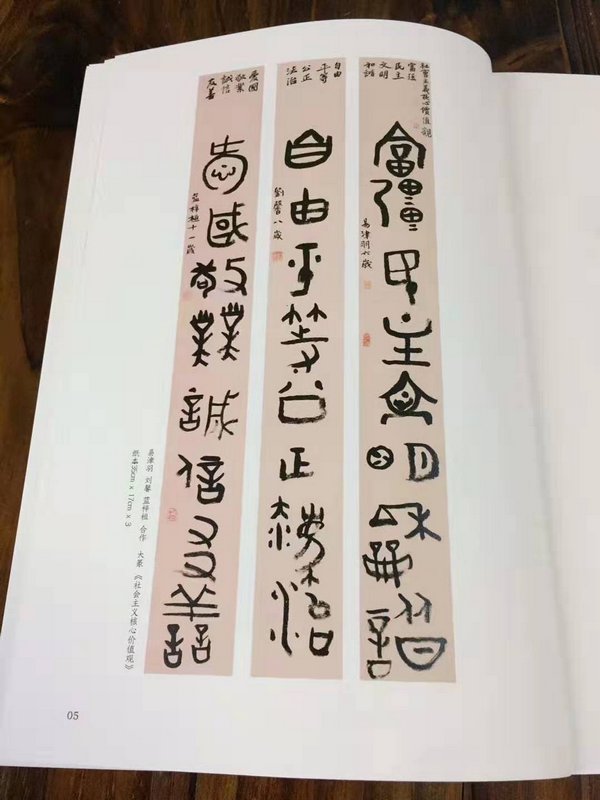 社會主義核心價值觀
富强
民主
文明
和諧
富彊民主文明和諧
易津羽六歲
自由
平等
公正
法治
自由平等公正法治
劉馨八歲
愛國
敬業
誠信
友善
愛國敬業誠信友善
藍梓植十一歲
易津羽 刘馨 蓝梓植 合作 大篆 《社会主义核心价值观》
纸本35cm x 17cm x 3
05